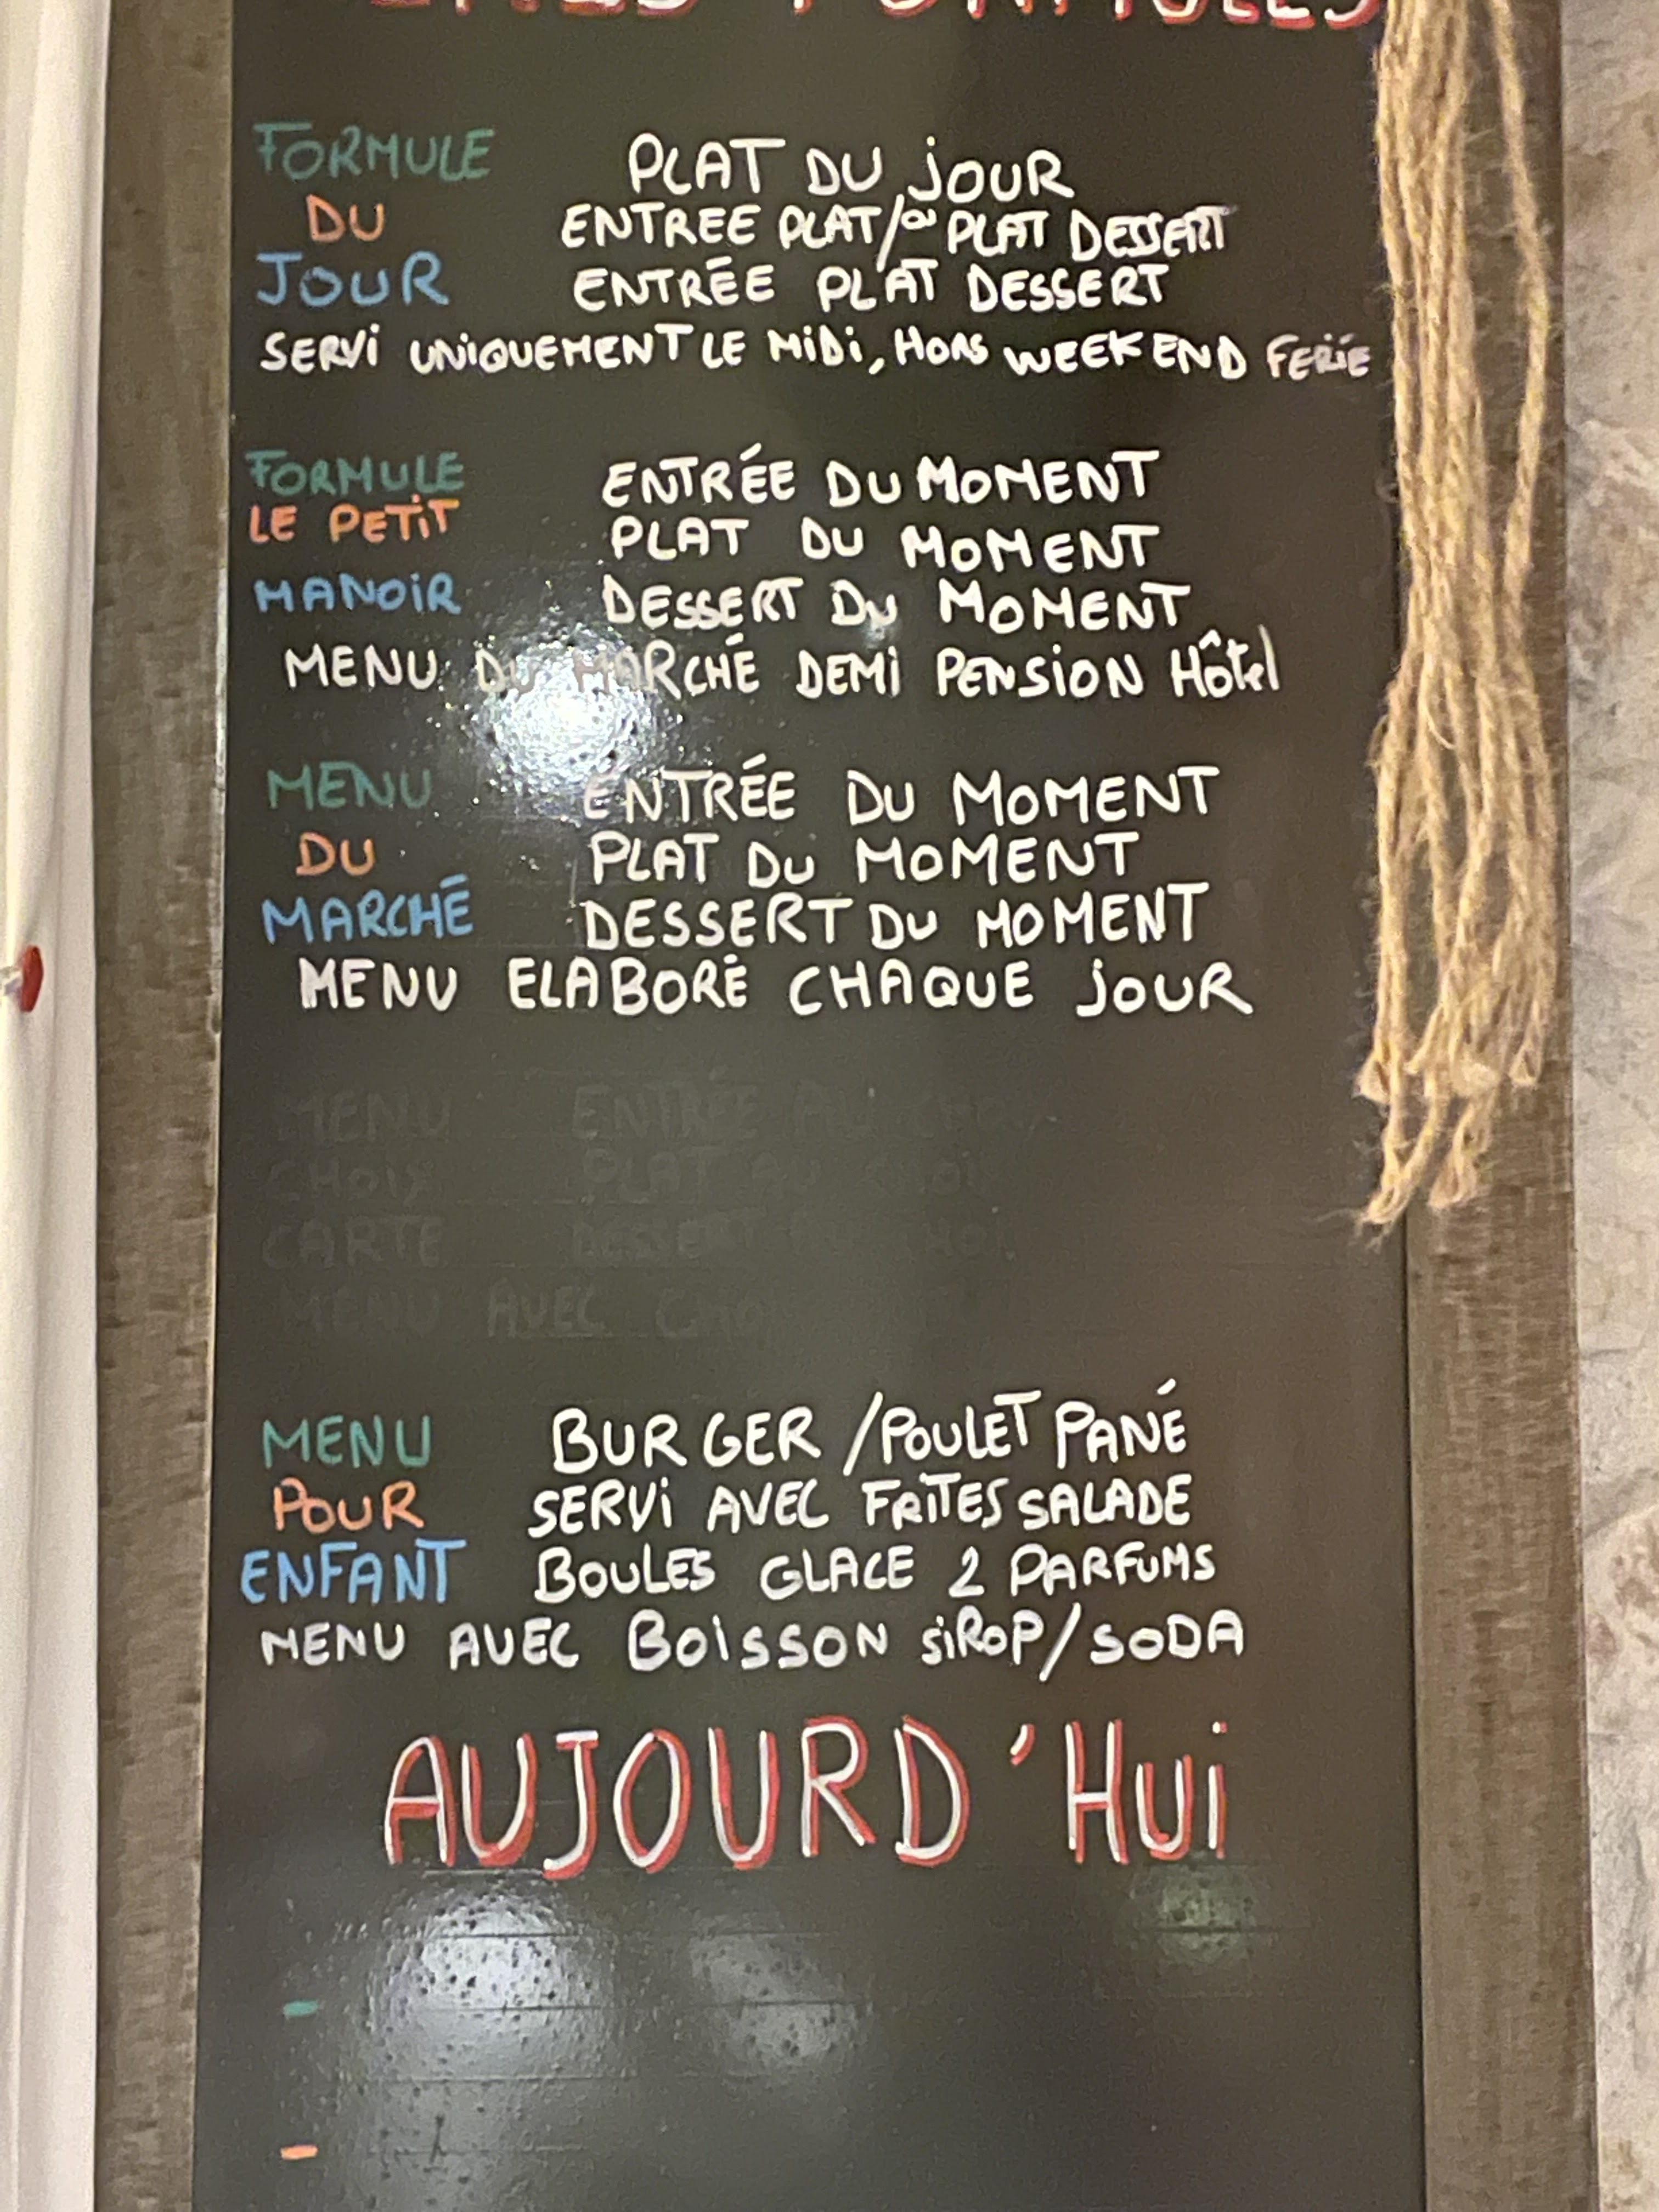 FORMULES
FORMULE PLAT DU JOUR
DU ENTREE PLAT/ou PLAT DESSERT
JOUR ENTRÉE PLAT DESSERT
SERVI UNIQUEMENT LE MIDI, HORS WEEK END FERIE
FORMULE ENTRÉE DU MOMENT
LE PETIT PLAT DU MOMENT
MANOIR DESSERT DU MOMENT
MENU DU MARCHÉ DEMI PENSION Hôtel
MENU ENTRÉE DU MOMENT
DU PLAT DU MOMENT
MARCHÉ DESSERT DU MOMENT
MENU ELABORÉ CHAQUE JOUR
MENU ENTRÉE AU CHOIX
CHOIX PLAT AU CHOIX
CARTE DESSERT AU CHOIX
MENU AVEC
MENU BURGER / POULET PANÉ
POUR SERVI AVEC FRITES SALADE
ENFANT BOULES GLACE 2 PARFUMS
MENU AVEC BOISSON SIROP/SODA
AUJOURD'HUI
-
-